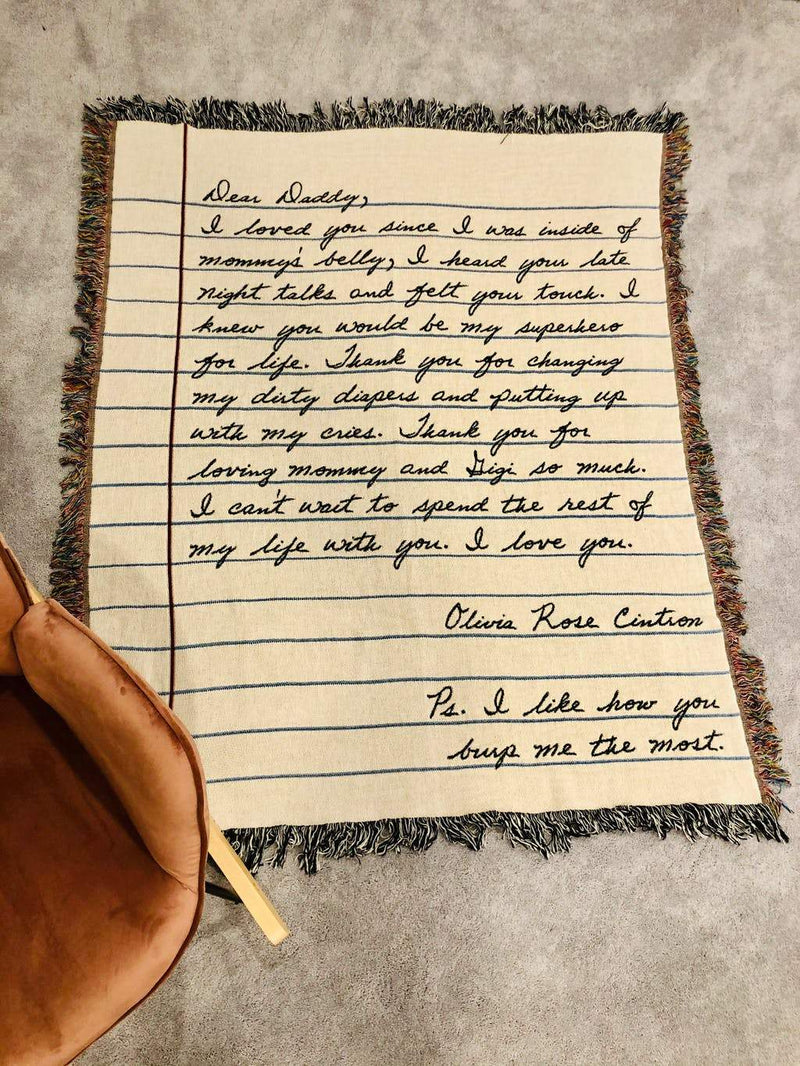 Dear Daddy,
I loved you since I was inside of
mommy's belly, I heard your late
night talks and felt your touch. I
knew you would be my superhero
for life. Thank you for changing
my dirty diapers and putting up
with my cries. Thank you for
loving mommy and Gigi so much.
I can't wait to spend the rest of
my life with you. I love you.
Olivia Rose Cintron
Ps. I like how you
burp me the most.